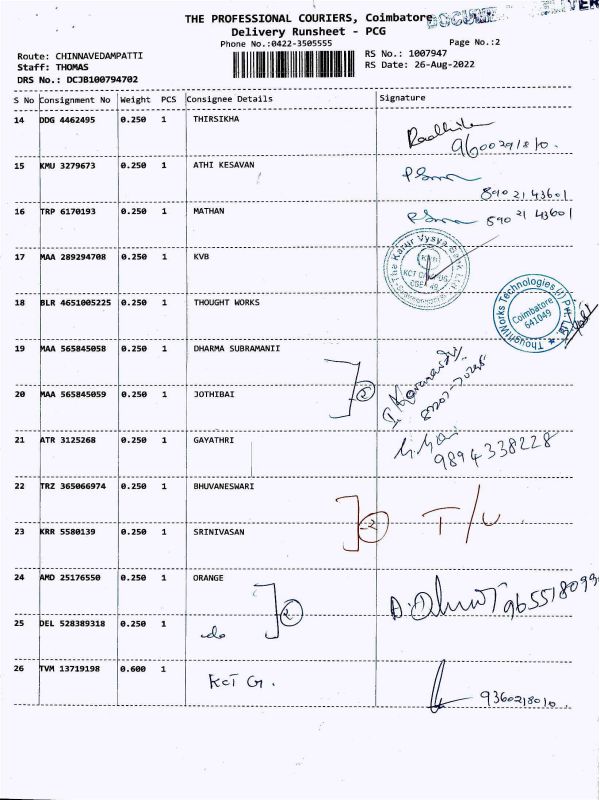 THE PROFESSIONAL COURIERS, Coimbatore
Delivery Runsheet - PCG
Phone No.:0422-3505555
Page No.:2
Route: CHINNAVEDAMPATTI
Staff: THOMAS
DRS No.: DCJB100794702
RS No.: 1007947
RS Date: 26-Aug-2022
S No Consignment No Weight PCS Consignee Details Signature
14 DDG 4462495 0.250 1 THIRSIKHA
15 KMU 3279673 0.250 1 ATHI KESAVAN
89021 43601
16 TRP 6170193 0.250 1 MATHAN
89021 43601
17 MAA 289294708 0.250 1 KVB
The Karur Vysya Bank Ltd
18 BLR 4651005225 0.250 1 THOUGHT WORKS
ThoughtWorks Technologies (I) Pvt. Ltd.
Coimbatore
641049
19 MAA 565845058 0.250 1 DHARMA SUBRAMANII
20 MAA 565845059 0.250 1 JOTHIBAI
2
21 ATR 3125268 0.250 1 GAYATHRI
9894338228
22 TRZ 365066974 0.250 1 BHUVANESWARI
2
T/L
23 KRR 5580139 0.250 1 SRINIVASAN
24 AMD 25176550 0.250 1 ORANGE
2
25 DEL 528389318 0.250 1 do
26 TVM 13719198 0.600 1 KCT G.
9360218010